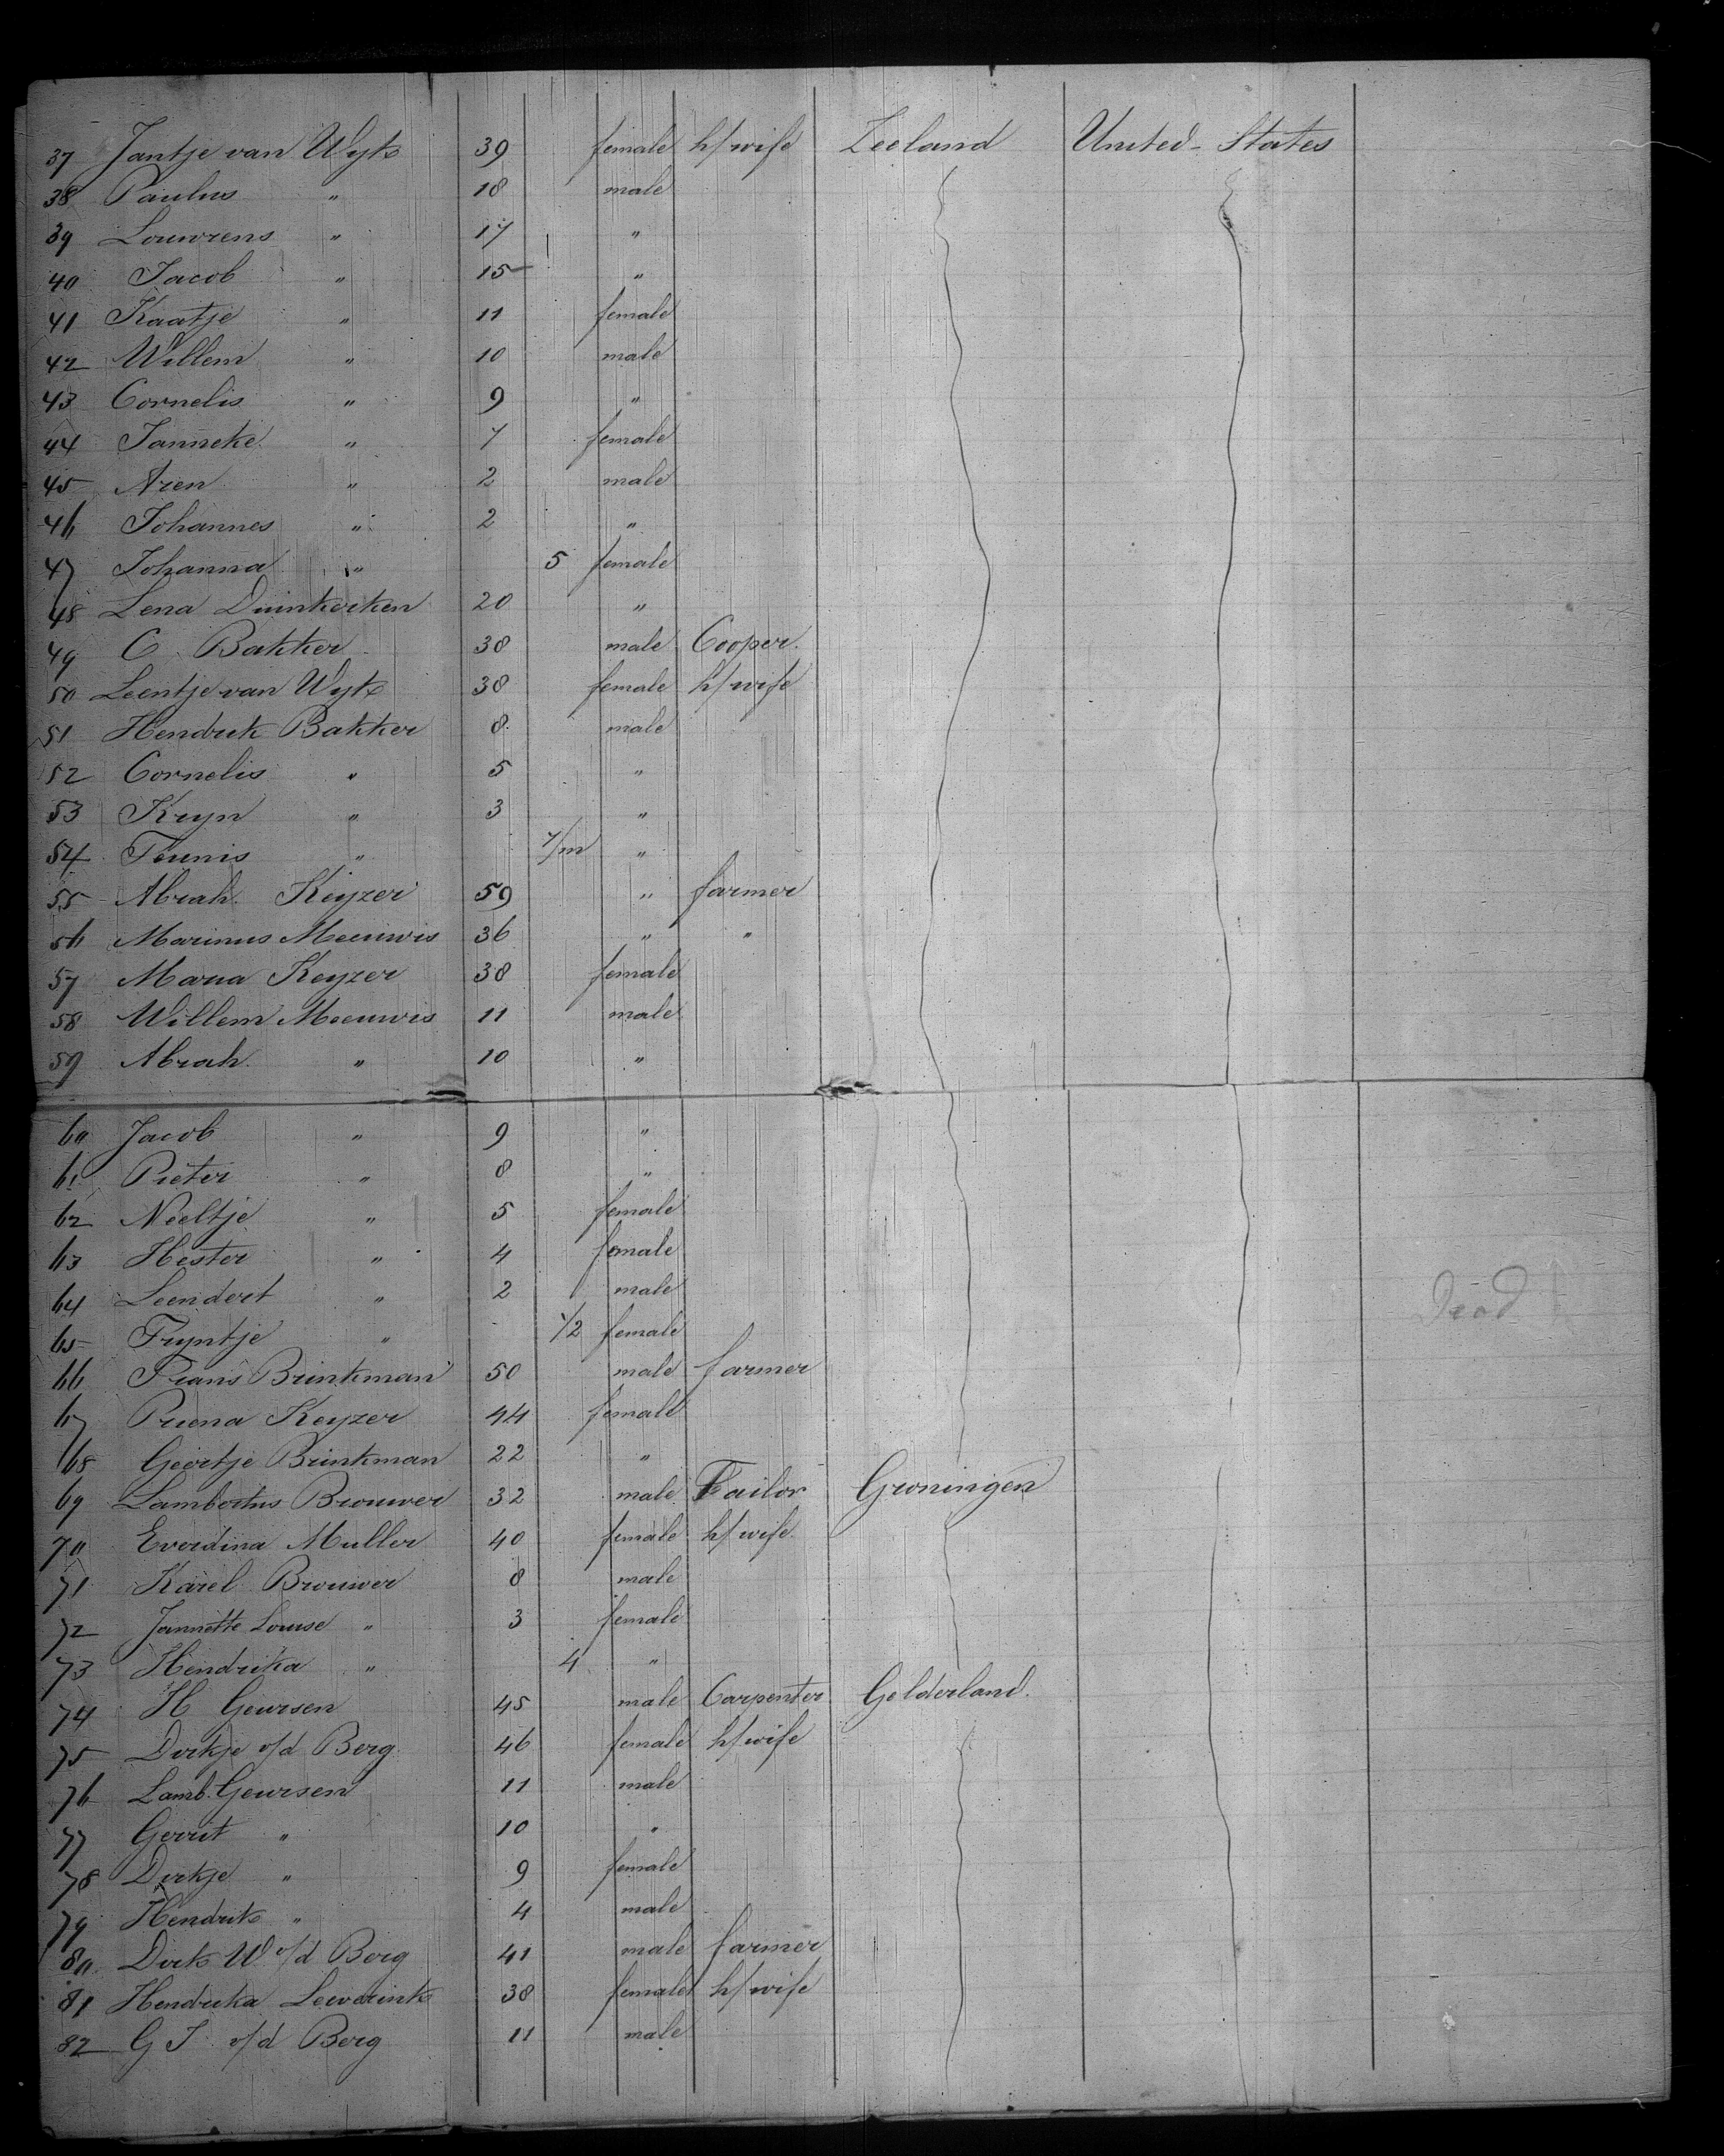 37 Jantje van Wyk 39 female h/wife Zeeland United-States
38 Paulus " 18 male
39 Louwrens " 17 "
40 Jacob " 15 "
41 Kaatje " 11 female
42 Willem " 10 male
43 Cornelis " 9 "
44 Janneke " 7 female
45 Aren " 2 male
46 Johannes " 2 "
47 Johanna " 5 female
48 Lena Duinkerken 20 "
49 C. Bakker 38 male Cooper.
50 Leentje van Wyk 38 female h/wife
51 Hendrik Bakker 8 male
52 Cornelis " 5 "
53 Kryn " 3 "
54 Teunis " 7/m "
55 Abrah. Keyzer 59 " farmer
56 Marinus Meeuwis 36 " "
57 Maria Keyzer 38 female
58 Willem Meeuwis 11 male
59 Abrah. " 10 "
60 Jacob " 9 "
61 Pieter " 8 "
62 Neeltje " 5 female
63 Hester " 4 female
64 Leendert " 2 male Dead
65 Tryntje " 1/2 female
66 Frans Brinkman 50 male farmer
67 Keyzer 44 female
68 Geertje Brinkman 22 "
69 Lambertus Brouwer 32 male Tailor Groningen
70 Everdina Muller 40 female h/wife
71 Karel Brouwer 8 male
72 Jannette Louise " 3 female
73 Hendrika " 4 "
74 H Geursen 45 male Carpenter Gelderland.
75 Dirkje v/d Berg 46 female h/wife
76 Lamb. Geursen 11 male
77 Gerrit " 10 "
78 Dirkje " 9 female
79 Hendrik " 4 male
80 Dirk W v/d Berg 41 male farmer
81 Hendrika Leeverink 38 female h/wife
82 G J v/d Berg 11 male